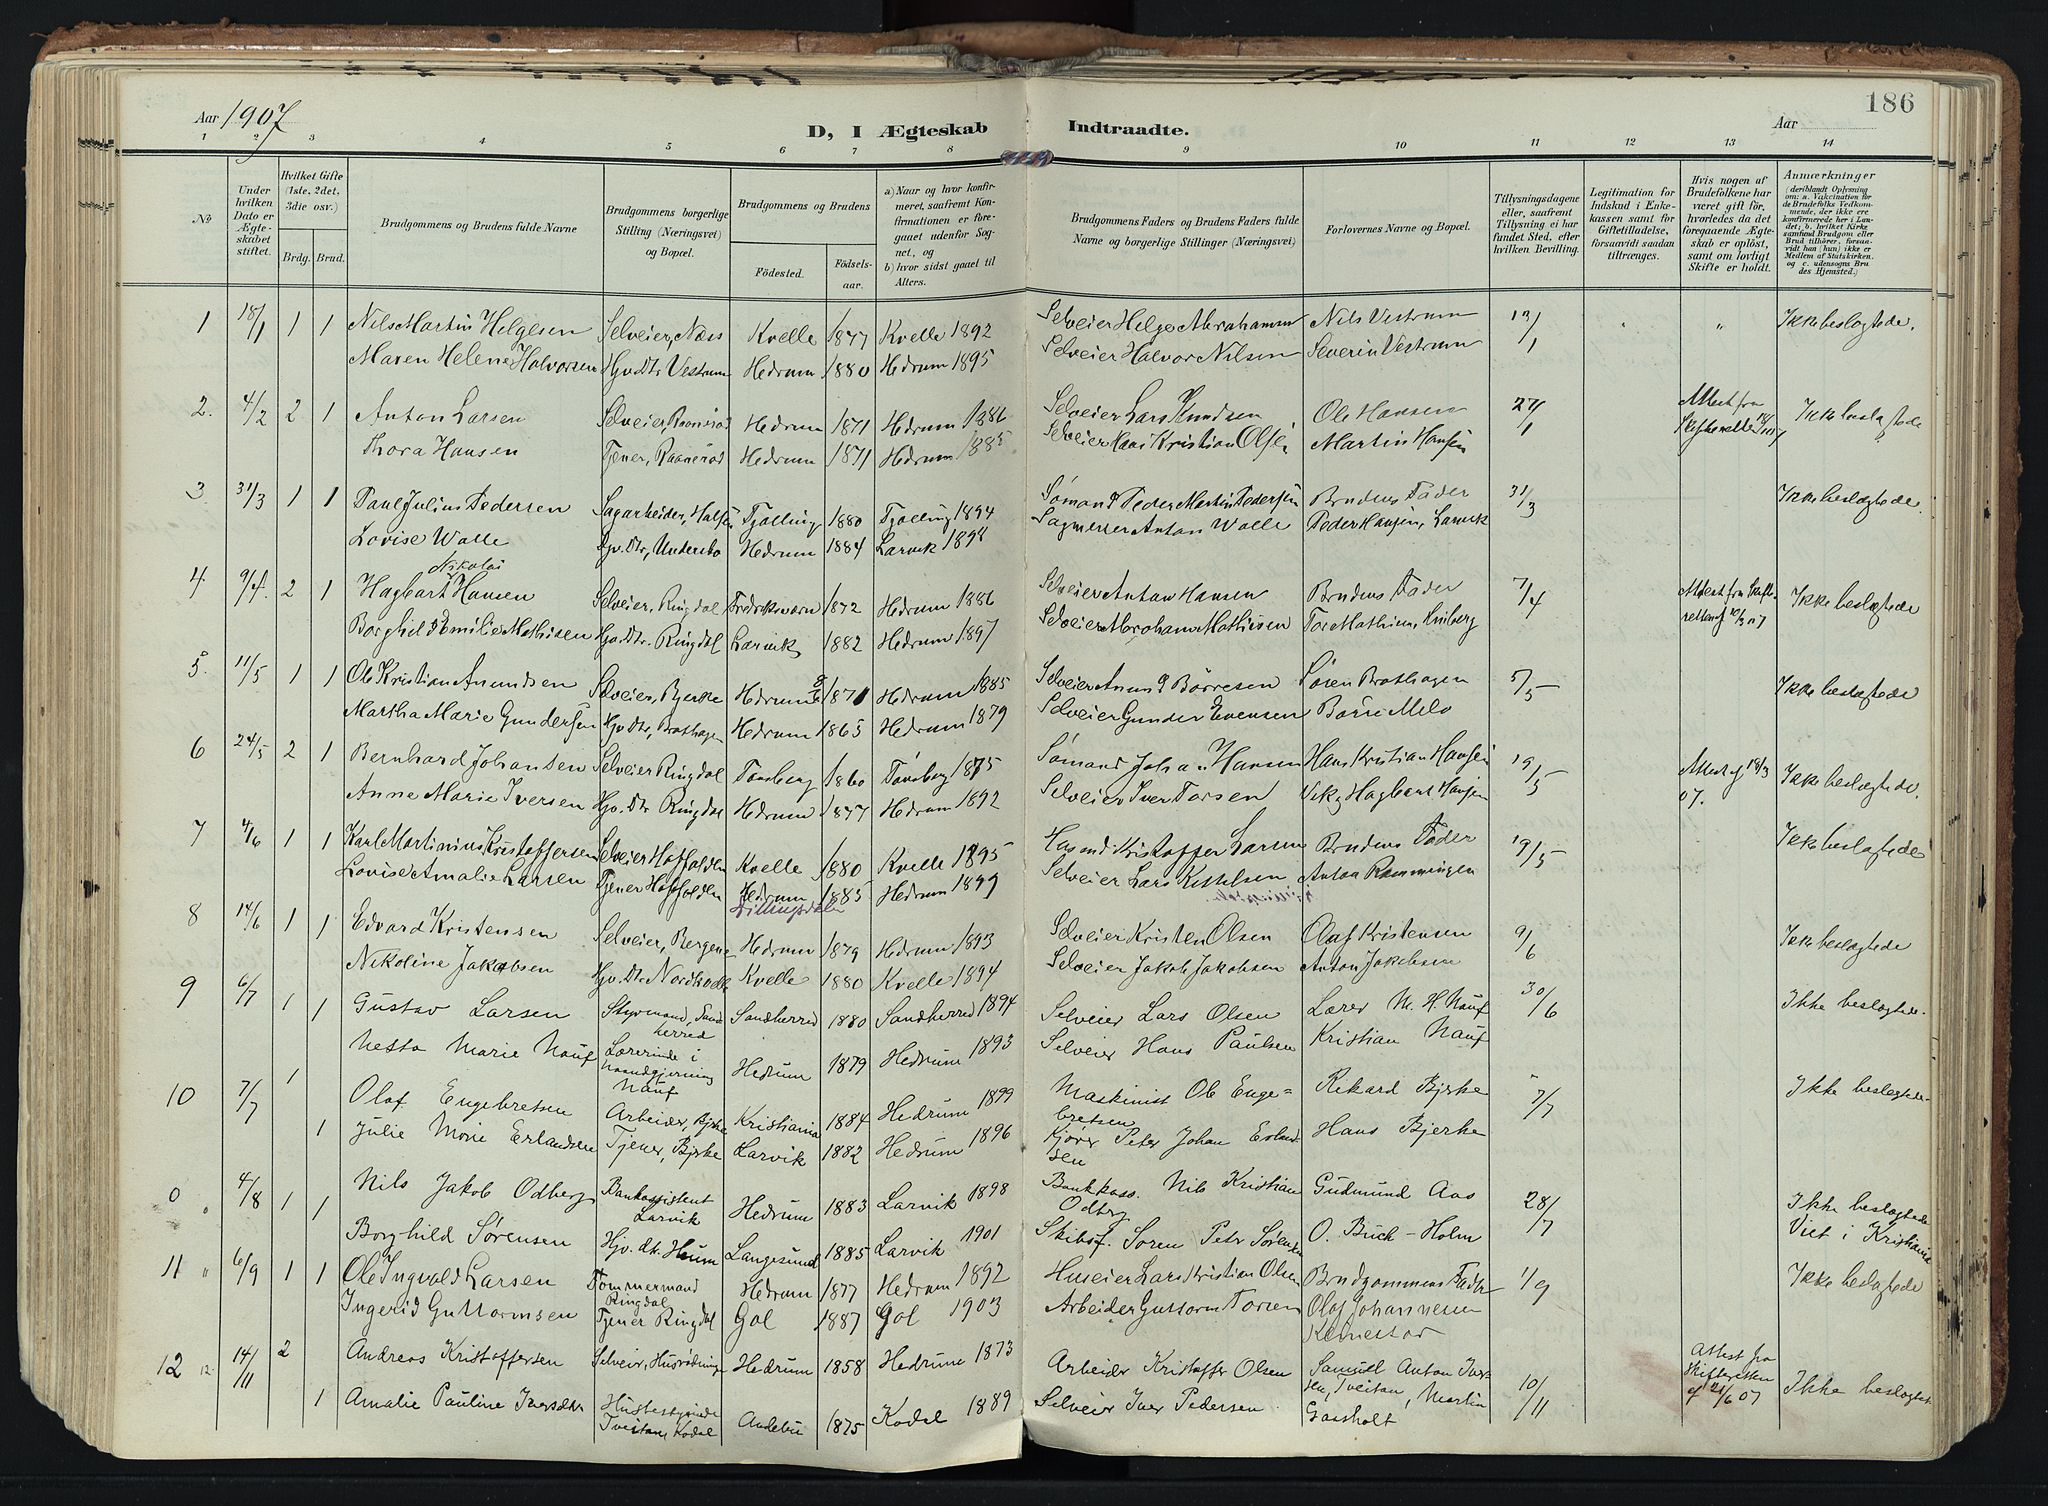 186
Aar 1907
D, I Ægteskab Indtraadte.
Aar
1 2 3 4 5 6 7 8 9 10 11 12 13 14
№
Under hvilken Dato er Ægteskabet stiftet.
Hvilket Gifte (1ste, 2det, 3die osv.)
Brdg. Brud.
Brudgommens og Brudens fulde Navne
Brudgommens borgerlige Stilling (Næringsvei) og Bopæl.
Brudgommens og Brudens
Fødested. Fødselsaar.
a) Naar og hvor konfirmeret, saafremt Konfirmationen er foregaaet udenfor Sognet, og
b) hvor sidst gaaet til Alters.
Brudgommens Faders og Brudens Faders fulde Navne og borgerlige Stillinger (Næringsvei)
Forlovernes Navne og Bopæl.
Tillysningsdagene eller, saafremt Tillysning ei har fundet Sted, efter hvilken Bevilling.
Legitimation for Indskud i Enkekassen samt for Giftetilladelse, forsaavidt saadan tiltrænges.
Hvis nogen af Brudefolkene har været gift før, hvorledes da det foregaaende Ægteskab er opløst, samt om lovligt Skifte er holdt.
Anmærkninger
(deriblandt Oplysning om: a. Vakcination for de Brudefolks Vedkommende, der ikke ere konfirmerede her i Landet; b. hvilket Kirkesamfund Brudgom eller Brud tilhører, forsaavidt han (hun) ikke er Medlem af Statskirken. og c. udensogns Brudes Hjemsted.)
1 18/1 1 1 Nils Martin Helgesen Selveier, Næss Kvelle 1877 Kvelle 1892 Selveier Helge Abrahamsen Nils Vestrum 13/1 " " Ikke beslægtede.
Maren Helene Halvorsen Hjv. Dtr Vestrum Hedrum 1880 Hedrum 1895 Selveier Halvor Nilsen Severin Vestrum
2. 4/2 2 1 Anton Larsen Selveier, Hedrum 1871 Hedrum 1886 Selveier Lars Knudsen Ole Hansen 27/1 Attest fra Ikke beslægtede
Thora Hansen Tjener, Hedrum 1871 Hedrum 1885 Selveier Hans Kristian Olsen Martin Hansen Skifteretten
3 31/3 1 1 Paul Julius Pedersen Sagarbeider, Tjølling 1880 Tjølling 1894 Sømand Peder Martin Pedersen Brudens Fader 31/3 Ikke beslægtede.
Lovise Walle Hjv. Dtr, Undersbo Hedrum 1884 Larvik 1898 Sagmester Anton Walle Peder Hansen, Larvik
Nikolai
4. 9/4. 2 1 Hagbart Hansen Selveier, Ringdal Fredriksværn 1872 Hedrum 1886 Selveier Anton Hansen Brudens Fader 7/4 Attest fra Skifteretten af Ikke beslægtede
Borghild Emilie Mathisen Hjv. Dtr. Ringdal Larvik 1882 Hedrum 1897 Selveier Abraham Mathisen Tor Mathisen,
5. 11/5 1 1 Ole Kristian Amundsen Selveier, Bjerke Hedrum 8/6 1871 Hedrum 1885 Selveier Amund Børresen Søren Brathagen 5/5 Ikke beslægtede
Martha Marie Gundersen Hjv. Dtr, Brathagen Hedrum 1865 Hedrum 1879 Selveier Gunder Evensen Børre Melo
6 24/5 2 1 Bernhard Johansen Selveier Ringdal Tønsberg 1860 Tønsberg 1875 Sømand Johan Hansen Hans Kristian Hansen 19/5 Attest af 18/3 07. Ikke beslægtede.
Anne Marie Iversen Hjv. Dtr Ringdal Hedrum 1877 Hedrum 1892 Selveier Iver Torsen Hagbart Hansen
7 4/6 1 1 Karl Martinius Kristoffersen Selveier Kvelle 1880 Kvelle 1895 Husmd Kristoffer Larsen Brudens Fader 19/5 Ikke beslægtede
Lovise Amalie Larsen Tjener Hedrum 1885 Hedrum 1899 Selveier Lars Kittelsen Anton Ramningen
8 14/6 1 1 Edvard Kristensen Selveier, Bergene Hedrum 1879 Hedrum 1893 Selveier Kristen Olsen Olaf Kristensen 9/6 Ikke beslægtede
Nikoline Jakobsen Hjv. Dtr. Kvelle 1880 Kvelle 1894 Selveier Jakob Jakobsen Anton Jakobsen
9 6/7 1 1 Gustav Larsen Styrmand, Sandherred Sandherred 1880 Sandherred 1894 Selveier Lars Olsen Lærer M. H. Nauf 30/6 Ikke beslægtede.
Nesta Marie Nauf Lærerinde i Haandgjerning Nauf Hedrum 1879 Hedrum 1893 Selveier Hans Paulsen Kristian Nauf
10 7/7 1 1 Olaf Engebretsen Arbeider, Bjrke Kristiania 1884 Hedrum 1899 Maskinist Ole Engebretsen Rikard Bjerke 7/7 Ikke beslægtede.
Julie Marie Erlandsen Tjener, Bjrke Larvik 1882 Hedrum 1896 Kjører Peter Johan Erlandsen Hans Bjerke
0 4/8 1 1 Nils Jakob Odberg Bankassistent Larvik Hedrum 1883 Larvik 1898 Bankkass. Nils Kristian Odberg Gudmund Aas 28/7 Ikke beslægtede
Borghild Sørensen Hjv. dt. Heum Langesund 1885 Larvik 1901 Skibsf. Søren Petr Sørensen O. Buch-Holm Viet i Kristiania
11 " 6/9 1 1 Ole Ingvald Larsen Tømmermand Ringdal Hedrum 1877 Hedrum 1892 Huseier Lars Kristian Olsen Brudgommens Fader 1/9 Ikke beslægtede
Ingerid Guttormsen Tjener Ringdal Gol 1887 Gol 1903 Arbeider Guttorm Torsen Olaf Johannesen
12 12. 14/11 2 1 Andreas Kristoffersen Selveier, Hedrum 1858 Hedrum 1873 Arbeider Kristoffer Olsen Samuel Anton Iversen, Tveitan, Martin Gaasholt 10/11 Attest fra Skifteretten af 21/6 07 Ikke beslægtet
Amalie Pauline Iversen Husbestyrinde Tveitan, Kodal Andebu 1875 Kodal 1889 Selveier Iver Pedersen